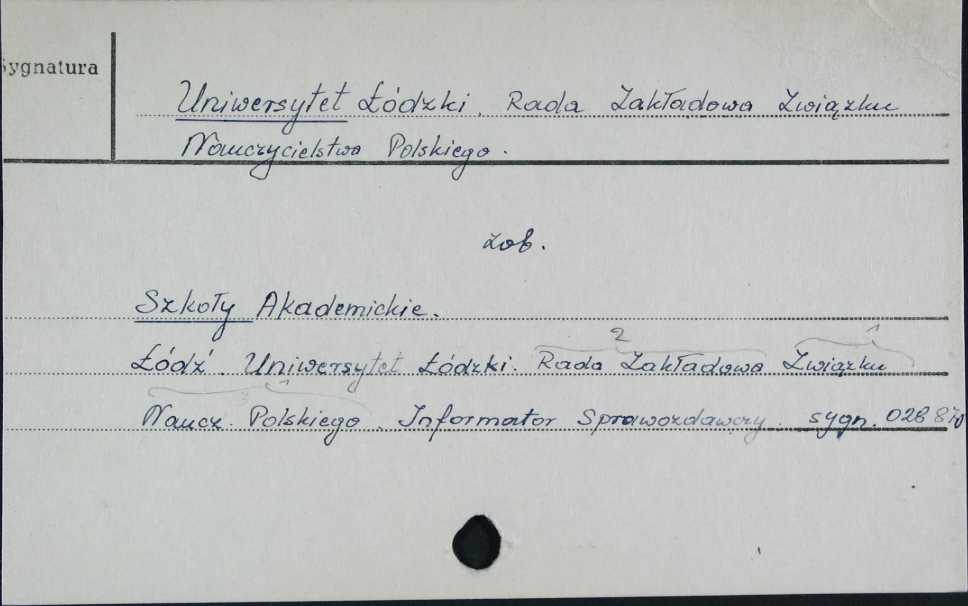 Sygnatura
Uniwersytet Łódzki. Rada Zakładowa Związku
Nauczycielstwa Polskiego.
zob.
Szkoły Akademickie.
2 1
Łódź. Uniwersytet Łódzki. Rada Zakładowa Związku
Naucz. Polskiego. Informator Sprawozdawczy. sygn. 026870